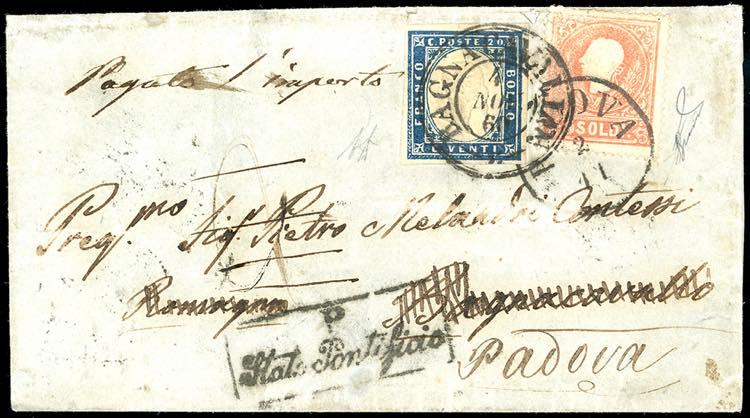 Pagato l'importo
C. POSTE 20
FRANCO
BOLLO
C. VENTI
BAGNA
NO
6
OVA
2
11
SOLDI
Preg.mo Sig. Pietro Contessi
Romagna
P
Stato Pontificio
Padova